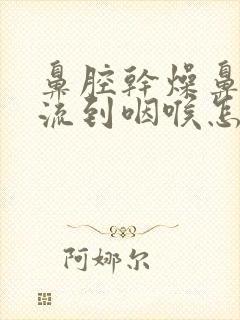 鼻腔幹燥鼻
流到咽喉怎
阿娜尔